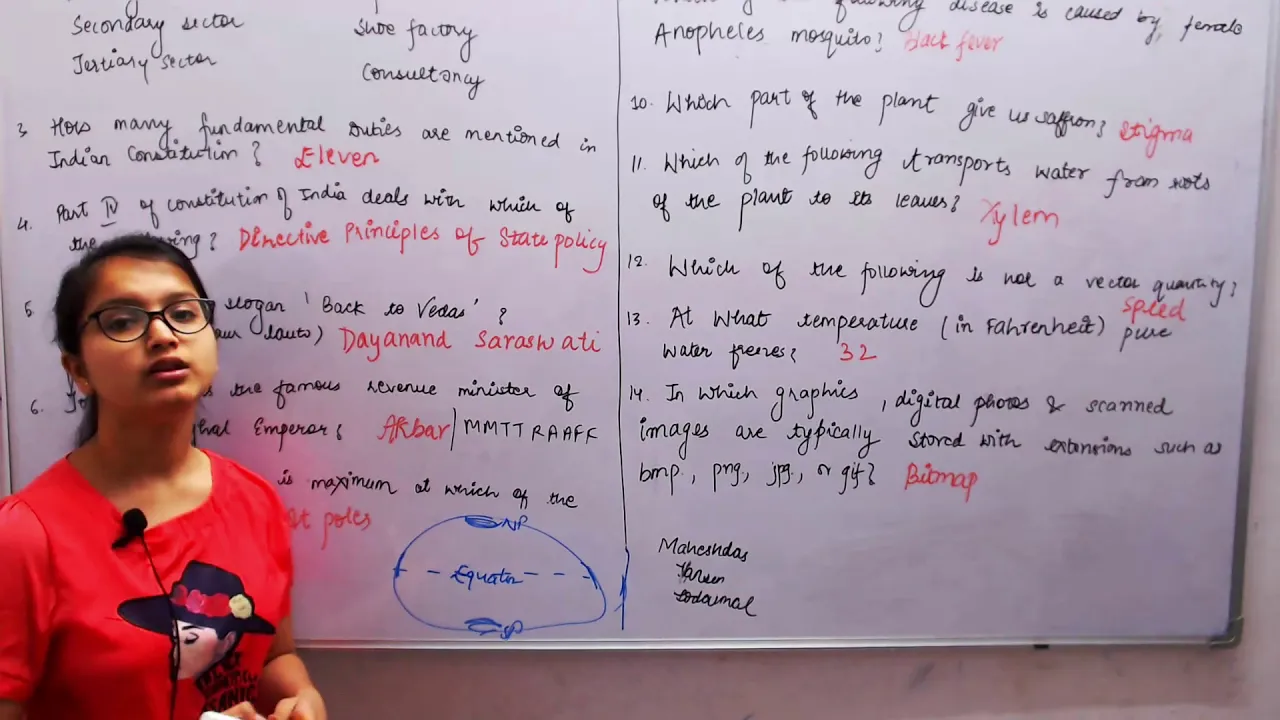 Secondary sector
Shoe factory
Tertiary sector
Consultancy
3. How many fundamental Duties are mentioned in
Indian Constitution? Eleven
4. Part IV of constitution of India deals with which of
the Directive Principles of State policy
5. slogan 'Back to Vedas' ?
Dayanand Saraswati
6. the famous revenue minister of
Emperor? Akbar/MMTTRAAFF
is maximum at which of the
At poles
NP
Equator
SP
following disease is caused by female
Anopheles mosquito? black fever
10. Which part of the plant give us saffron? Stigma
11. Which of the following transports water from roots
of the plant to its leaves? Xylem
12. Which of the following is not a vector quantity?
speed
13. At what temperature (in Fahrenheit) pure
water freezes? 32
14. In which graphics, digital photos & scanned
images are typically stored with extensions such as
bmp., png., jpg., or gif? Bitmap
Maheshdas
Todarmal